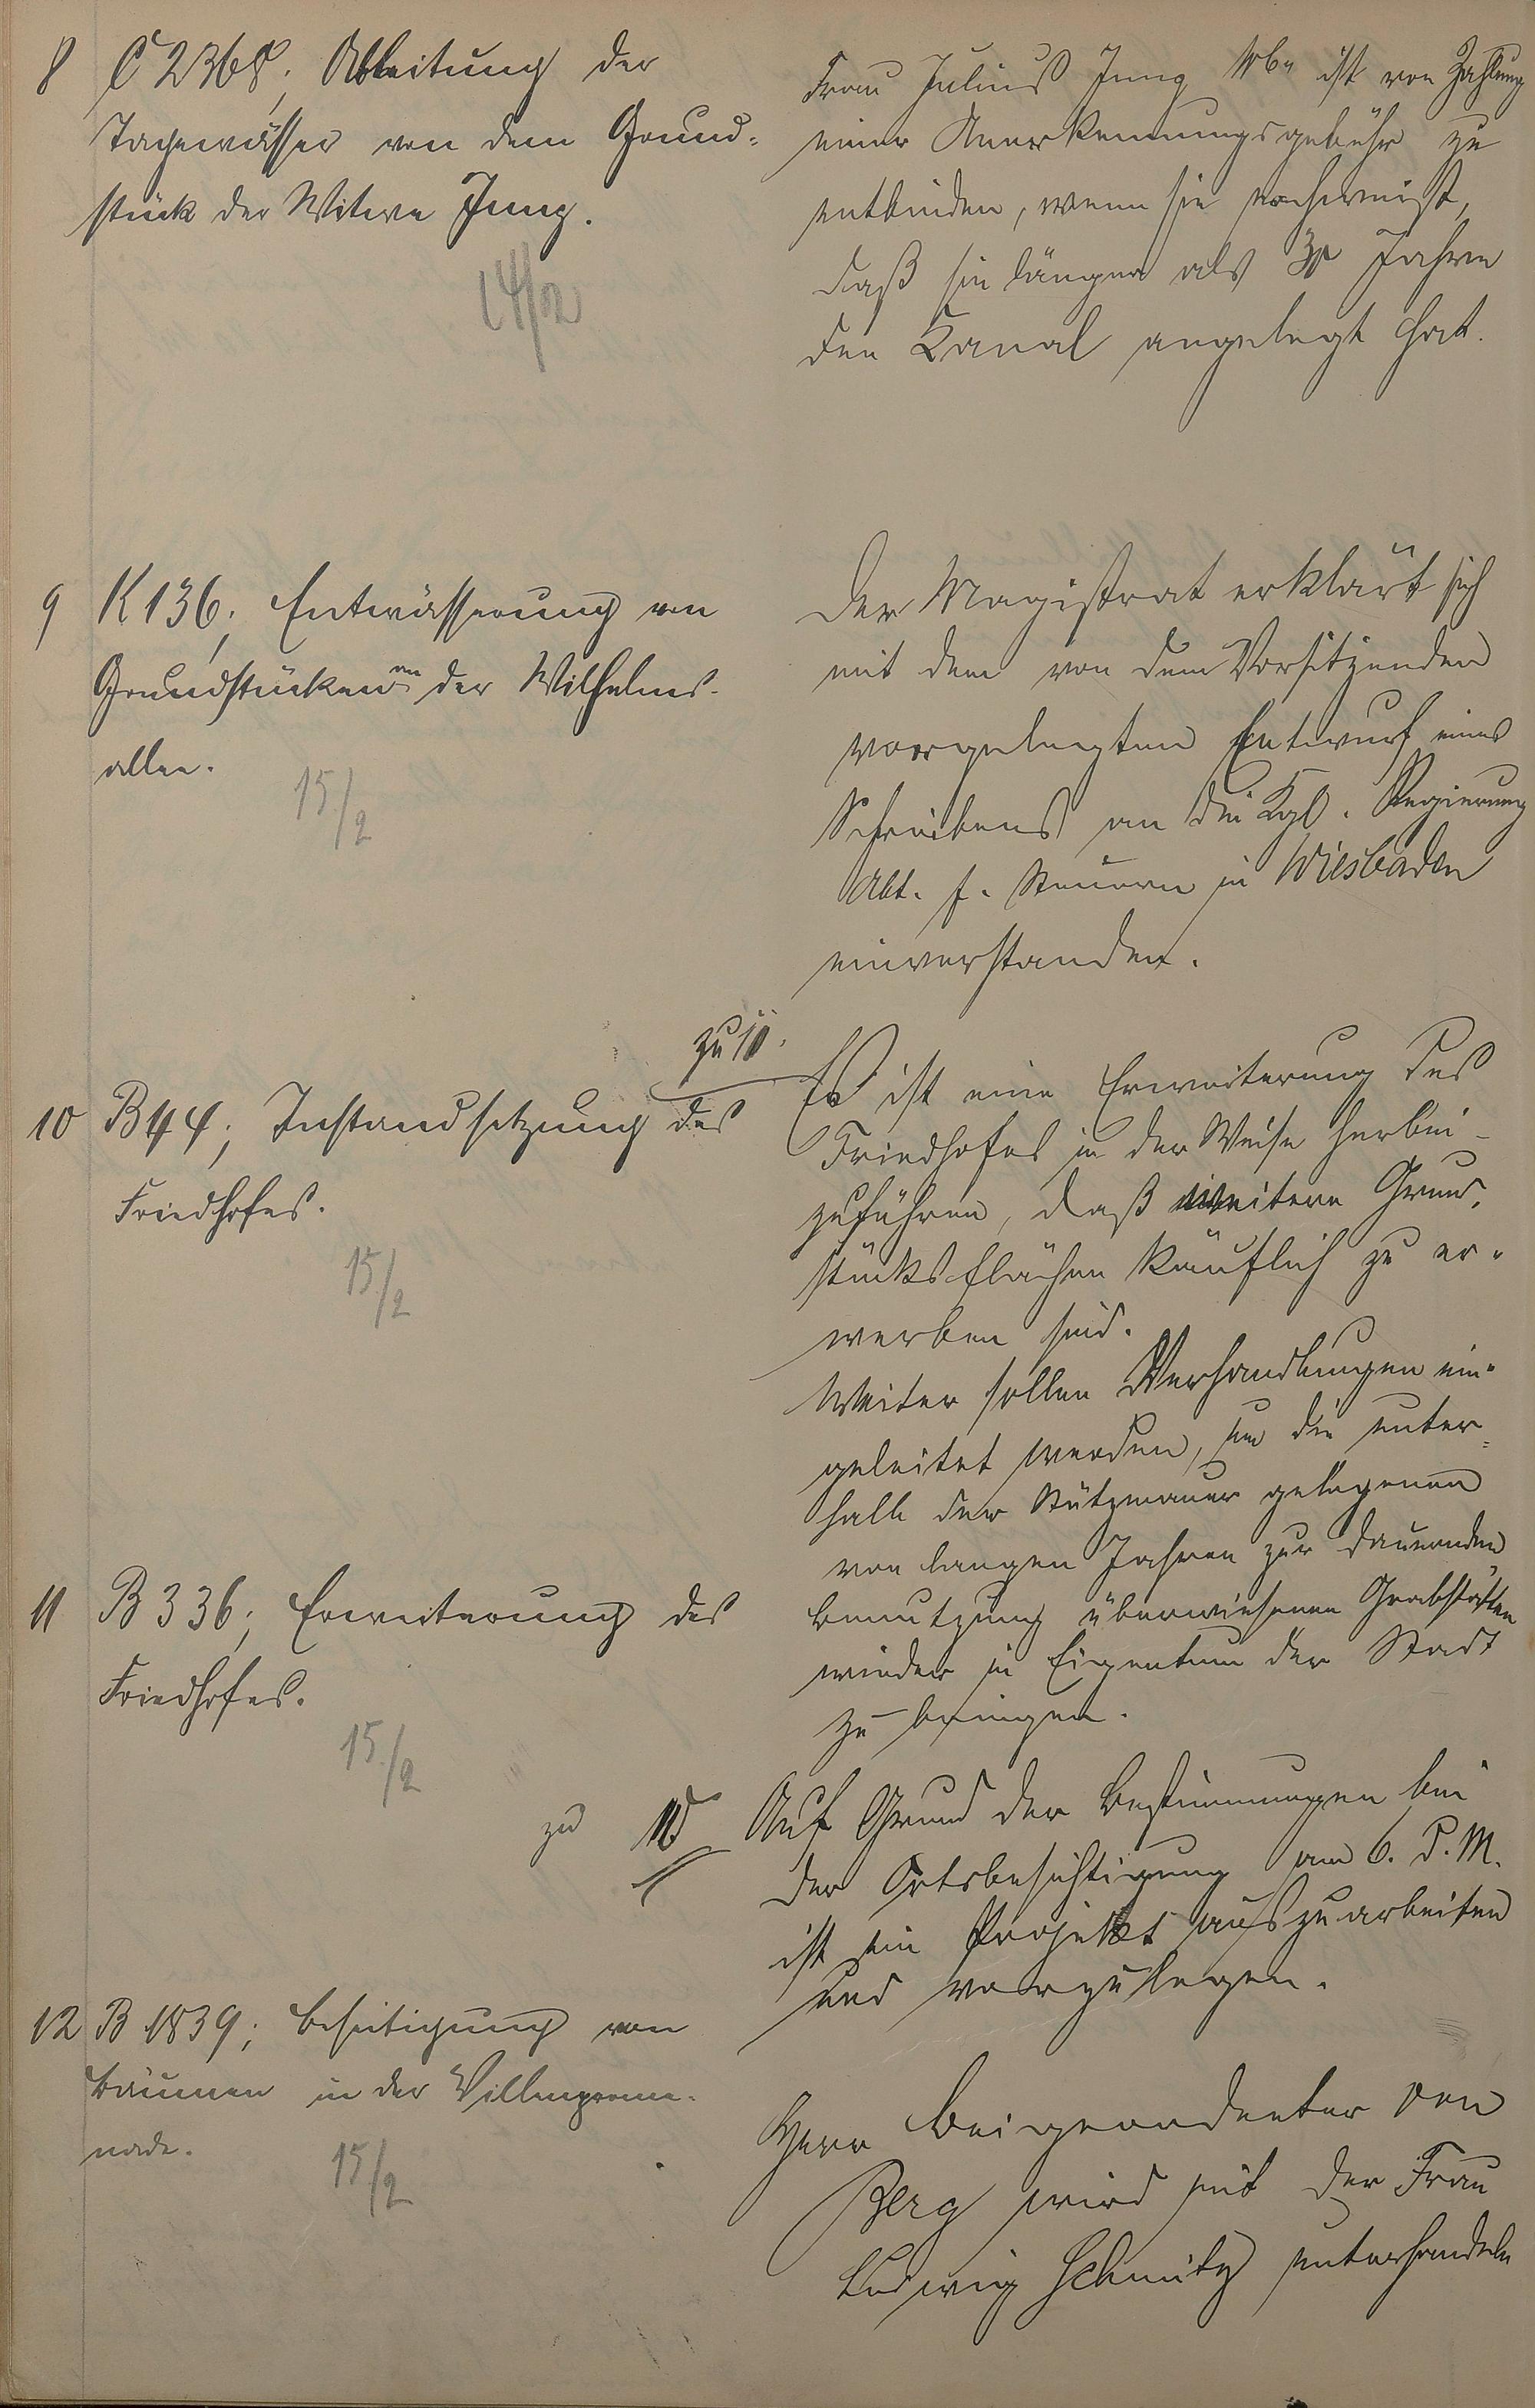 8 C 2368, Ableitung der
Tagewässer von dem Grund-
stück der Witwe Jung.
14/2
Frau Julius Jung Wwe ist von Zahlung
einer Anerkennungsgebühr zu
entbinden, wenn sie nachweist,
daß sie länger als 30 Jahre
den Kanal angelegt hat.
9 K 136, Entwässerung von
Grundstücken an der Wilhelms-
allee.
15/2
Der Magistrat erklärt sich
mit dem von dem Vorsitzenden
vorgelegten Entwurf eines
Schreibens an die Kgl. Regierung
Abt. f. Steuern in Wiesbaden
einverstanden.
10 B 44; Instandsetzung des
Friedhofes.
15/2
zu 10.
Es ist eine Erweiterung des
Friedhofes in der Weise herbei-
zuführen, daß weitere Grund-
stücksflächen käuflich zu er-
werben sind.
Weiter sollen Verhandlungen ein-
geleitet werden, um die unter-
halb der Stützmauer gelegenen
vor langen Jahren zur dauernden
Benutzung überwiesenen Grabstätten
wieder in Eigentum der Stadt
zu bringen.
11 B 336; Erweiterung des
Friedhofes.
15/2
zu
Auf Grund der Bestimmungen bei
der Ortsbesichtigung am 6. d. M.
ist ein Projekt auszuarbeiten
und vorzulegen.
12 B 1839; Beseitigung von
Bäumen in der Villenprome-
nade.
15/2
Herr Beigeordneter von
Berg wird mit der Frau
Ludwig Schmitz unterhandeln